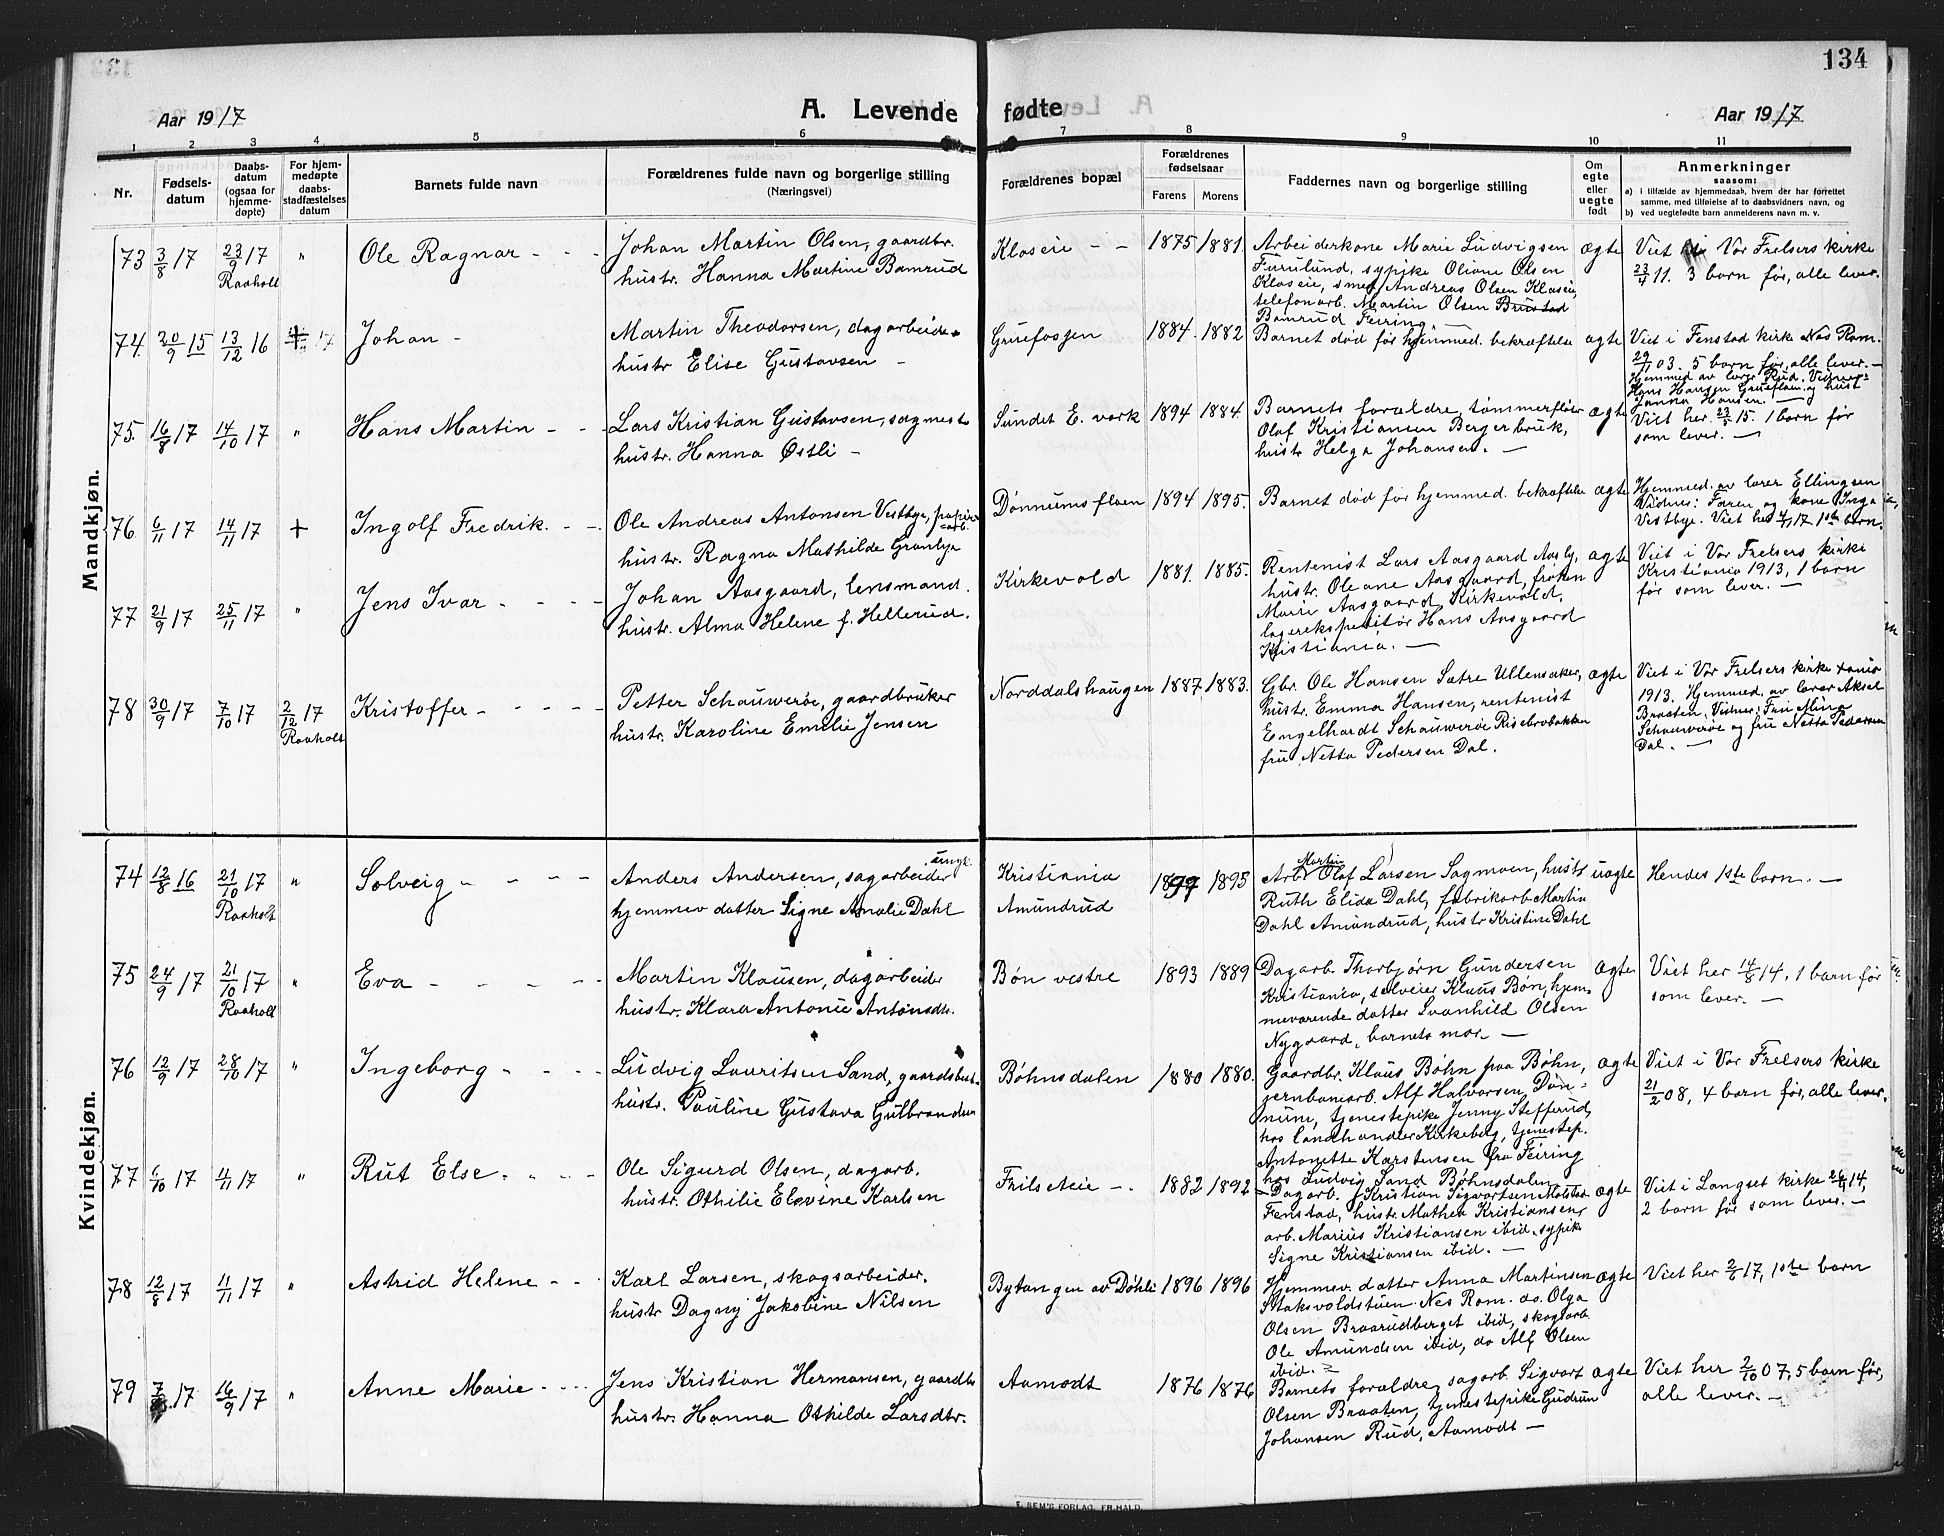 134
Aar 1917
A. Levende fødte
Aar 1917
1 2 3 4 5 6 7 8 9 10 11
Nr.
Fødsels-
datum
Daabs-
datum
(ogsaa for
hjemme-
døpte)
For hjem-
medøpte
daabs-
stadfæstelses
datum
Barnets fulde navn
Forældrenes fulde navn og borgerlige stilling
(Næringsvei)
Forældrenes bopæl
Forældrenes
fødselsaar
Farens Morens
Faddernes navn og borgerlige stilling
Om
egte
eller
uegte
født
Anmerkninger
saasom:
a) i tilfælde av hjemmedaab, hvem der har forrettet
samme, med tilføielse af to daabsvidners navn, og
b) ved uegtefødte barn anmelderens navn m. v.
Mandkjøn.
73 3/8 17 23/9 17 Raaholt " Ole Ragnar - -
Johan Martin Olsen, gaardbr.
hustr. Hanna Martine Bamrud
Kloseie - - 1875 1881.
Arbeiderkone Marie Ludvigsen
Furulund, sypike Oliane Olsen
Kloseie, smed Andreas Olsen Kloseie,
telefonarb. Martin Olsen Brustad
Bamrud Feiring. -
ægte
Viet i Vor Frelsers kirke
23/4 11. 3 barn før, alle lever.
74. 20/9 15 13/12 16 Johan -
Martin Theodorsen, dagarbeider
hustr Elise Gustavsen -
Gruefossen 1884. 1882
Barnet død før hjemmed. bekræftelse ægte
Viet i Fenstad kirke Nes Rom.
29/11 03. 5 barn før, alle lever. -
Hjemmed av lærer Rud. Vidner:
Hans Hansen Grueflaen og hust
Janna Hansen. -
75. 16/8 17 14/10 17 " Hans Martin - -
Lars Kristian Gustavsen, sagmest
hustr. Hanna Østli -
Sundet E. værk 1894 1884.
Barnets forældre, tømmerfløter
Olaf Kristiansen Bergerbruk,
hustr Helga Johansen. -
ægte
Viet her 23/5 15. 1 barn før
som lever. -
76. 6/11 17 14/11 17 + Ingolf Fredrik. - -
Ole Andreas Antonsen Vestbye, papir-
arb.
hustr. Ragna Mathilde Granlye
Dønnumsflaen 1894 1895.
Barnet død før hjemmed. bekræftelse ægte
Hjemmed. av lærer Ellingsen
Vidner: Faren og kone Inga
Vestbye. Viet her 4/4 17 1ste barn.
77 21/9 17 25/11 17 " Jens Ivar - - - -
Johan Aasgaard, lensmand.
hustr. Alma Helene f. Hellerud.
Kirkevold 1881. 1885.
Rentenist Lars Aasgaard Aasby,
hustr. Oleane Aasgaard, frøken
Marie Aasgaard Kirkevold,
lagerekspeditør Hans Aasgaard
Kristiania. -
ægte
Viet i Vor Frelsers kirke
Kristiania 1913, 1 barn
før som lever. -
78 30/9 17 7/10 17 2/12 17 Raaholt Kristoffer - - - - -
Petter Schauwerøe, gaardbruker
hustr. Karoline Emelie Jensen
Norddalshaugen 1887 1883.
Gbr. Ole Hansen Sætre Ullensaker,
hustr. Emma Hansen, rentenist
Engelhardt Schauwerøe Risebrobakken
fru Netta Pedersen Dal.
ægte
Viet i Vor Frelsers kirke Xania
1913. Hjemmed. av lærer Aksel
Braaten, Vidner: Fru Mina
Schauwerøe og fru Netta Pedersen
Dal. -
Kvindekjøn.
74 12/8 16 21/10 17 Raaholt " Solveig - - - -
Anders Andersen, sagarbeider ungk.
hjemmev datter Signe Amalie Dahl
Kristiania
Amundrud
1897 1895
Arb. Martin Olaf Larsen Sagmoen, hustr
Ruth Elida Dahl, fabrikarb. Martin
Dahl Amundrud, hustr Kristine Dahl
uægte
Hendes 1ste barn. -
75 24/9 17 21/10 17 Raaholt " Eva - - - - -
Martin Klausen, dagarbeider
hustr. Klara Antonie Antonsdtr.
Bøn vestre 1893 1889
Dagarb. Thorbjørn Gundersen
Kristiania, selveier Klaus Bøn, hjem-
meværende datter Svanhild Olsen
Nygaard, barnets mor. -
ægte
Viet her 14/8 14, 1 barn før
som lever. -
76 12/9 17 28/10 17 " Ingeborg - - - -
Ludvig Lauritsen Sand, gaardsbest.
hustr. Pauline Gustava Gulbrandsen
Bøhnsdalen 1880 1880.
Gaardbr. Klaus Bøhn paa Bøhn,
jernbanearb. Alf Halvorsen Døn-
num, tjenestepike Jenny Stefferud,
hos landhandler Kirkeberg, tjenestep.
Antonette Karstensen fra Feiring
hos Ludvig Sand Bøhnsdalen
ægte
Viet i Vor Frelsers kirke
21/2 08, 4 barn før, alle lever.
77 6/10 17 4/11 17 " Rut Else. - - -
Ole Sigurd Olsen, dagarb.
hustr. Othilie Elevine Karlsen
Frilseteie - - 1882 1892
Dagarb. Kristian Sigvartsen Molstad
Fenstad, hustr. Mathea Kristiansen,
arb. Marius Kristiansen ibid. sypik
Signe Kristiansen ibid. -
ægte
Viet i Langset kirke 26/4 14,
2 barn før som lever. -
78 12/8 17 11/11 17 " Astrid Helene - -
Karl Larsen, skogsarbeider.
hustr Dagny Jakobine Nilsen
Bytangen av Døhli 1896 1896
Hjemmev. datter Anna Martinsen
Staksvoldstuen Nes Rom. do. Olga
Olsen Braarudberget ibid, skogsarb.
Ole Amundsen ibid, do Alf Olsen
ibid. -
ægte
Viet her 2/6 17, 1ste barn
79 17 16/9 17 " Anne Marie - - -
Jens Kristian Hermansen, gaardbr
hustr. Hanna Othilde Larsdtr.
Aamodt 1876 1876
Barnets forældre, sagarb. Sigvart
Olsen Braaten, tjenestepike Gudrun
Johansen Rud, Aamodt -
ægte
Viet her 2/10 07, 5 barn før,
alle lever. -
E. SEM'S FORLAG, FR.HALD.